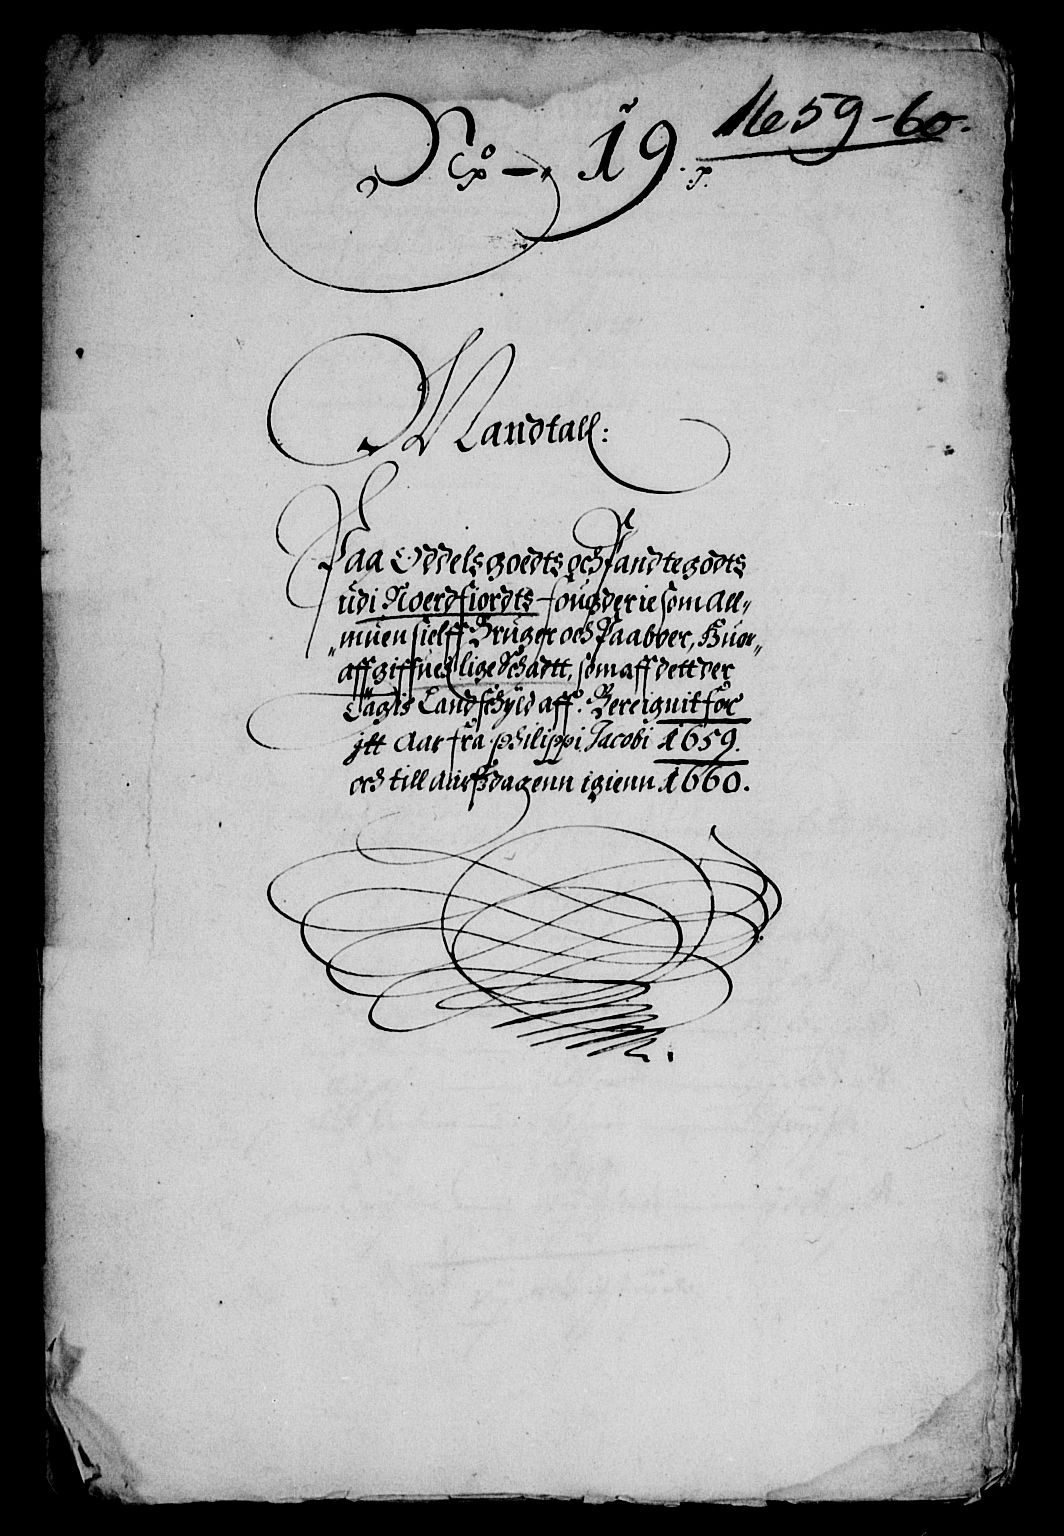 1659-60.
No - 19.
Mandtall:
Paa Oddelsgoedts och Pandtegodts
udi Noerdfiordts fougderie som All-
muen sielff Bruger och Paaboer, Huor-
aff giffues lige Schadtt, som aff dett der
Tagis Landschyld aff. Bereignit for
itt Aar fra Philippi Jacobi 1659.
och till Aarssdagenn igienn 1660.